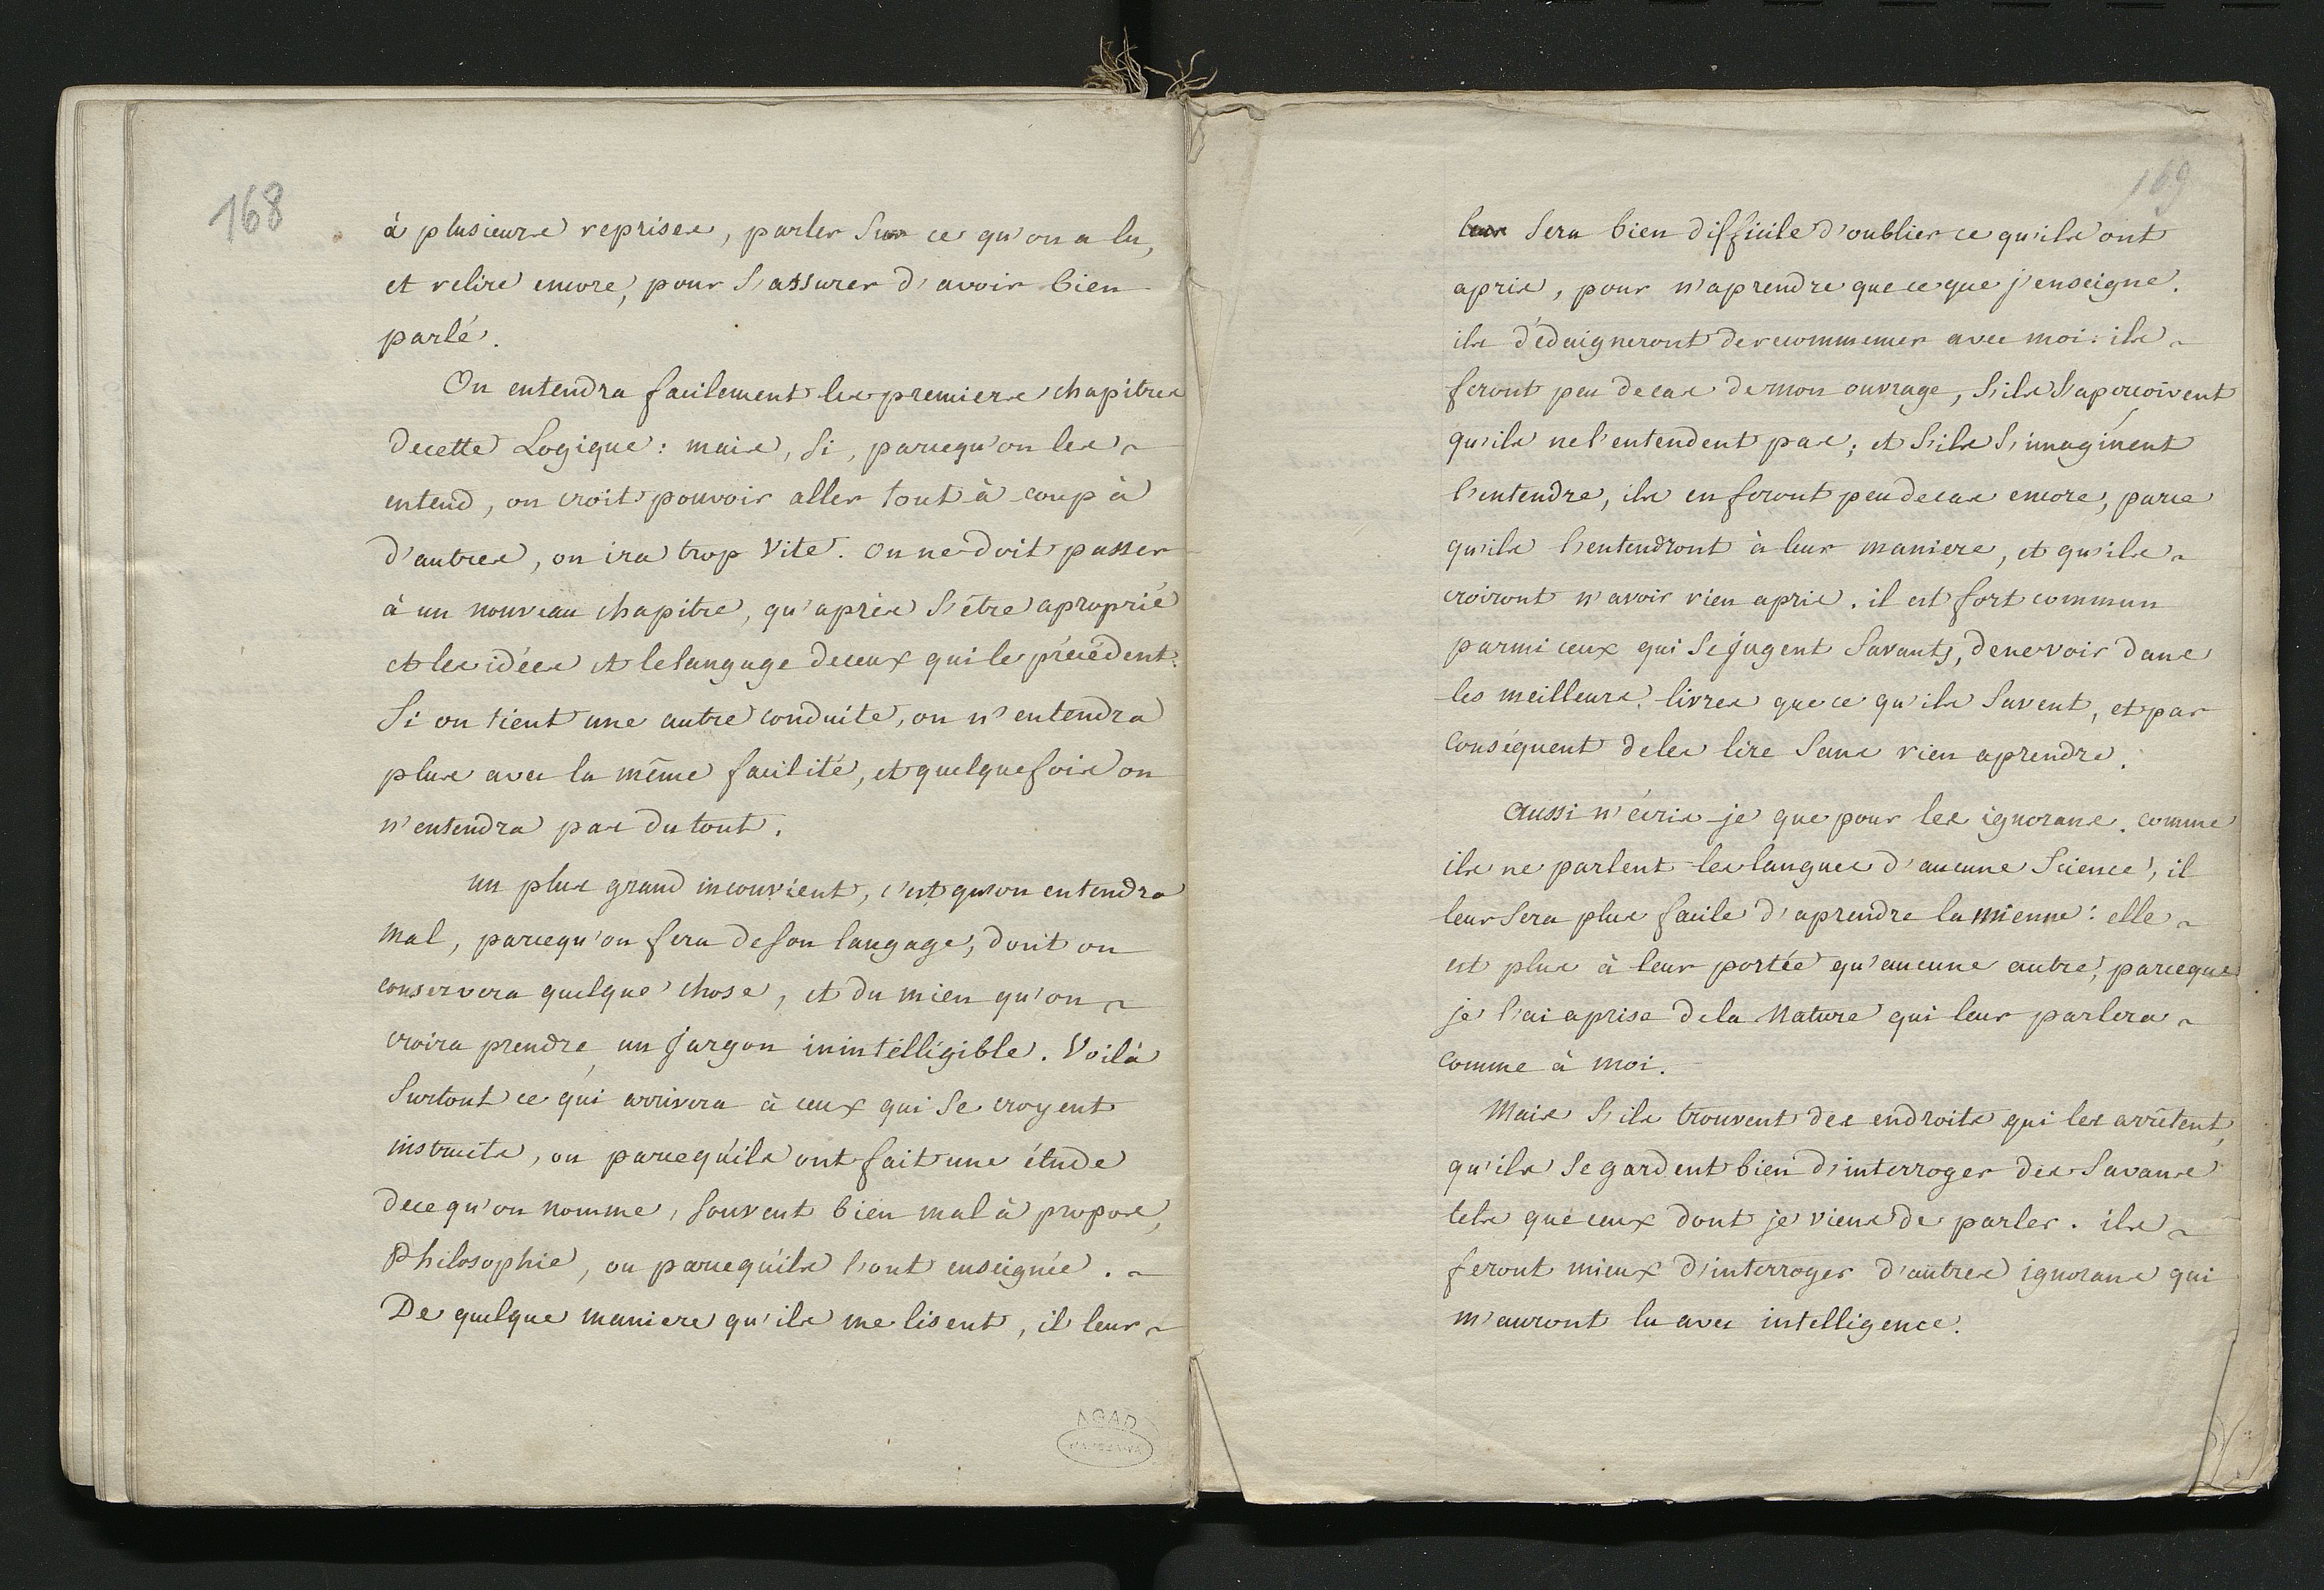 168
à plusieurs reprises, parler Sur ce qu'on a lu,
et relire encore, pour S'assurer d'avoir bien
parlé.
On entendra facilement les premiers chapitres
de cette Logique : mais, Si, parcequ'on les
entend, on croit pouvoir aller tout à coup à
d'autres, on ira trop Vite. on ne doit passer
à un nouveau chapitre, qu'après S'être aproprié
et les idées et le langage de ceux qui le précédent.
Si on tient une autre conduite, on n'entendra
plus avec la même facilité, et quelquefois on
n'entendra pas du tout.
un plus grand inconvient, c'est qu'on entendra
mal, parcequ'on fera de son langage, dont on
conservera quelque chose, et du mien qu'on
croira prendre, un Jargon inintélligible. Voilà
Surtout ce qui arrivera à ceux qui Se croyent
instruits, ou parcequ'ils ont fait une étude
de ce qu'on nomme, Souvent bien mal à propos,
Philosophie, ou parcequ'ils l'ont enseignée.
De quelque maniere qu'ils me lisent, il leur
169
leur Sera bien difficile d'oublier ce qu'ils ont
apris, pour n'aprendre que ce que j'enseigne.
ils dédaigneront de recommencer avec moi : ils
feront peu de cas de mon ouvrage, S'ils S'aperçoivent
qu'ils ne l'entendent pas ; et S'ils S'imaginent
l'entendre, ils en feront peu de cas encore, parce
qu'ils l'entendront à leur maniere, et qu'ils
croiront n'avoir rien apris. il est fort commun
parmi ceux qui Se jugent Savants, de ne voir dans
les meilleurs livres que ce qu'ils Savent, et par
conséquent de les lire Sans rien aprendre.
Aussi n'écris-je que pour les ignorans. comme
ils ne parlent les langues d'aucune Science, il
leur Sera plus facile d'aprendre la mienne : elle
est plus à leur portée qu'aucune autre, parceque
je l'ai aprise de la Nature qui leur parlera
comme à moi.
Mais S'ils trouvent des endroits qui les arrêtent,
qu'ils Se gardent bien d'interroger des Savans
tels que ceux dont je viens de parler. ils
feront mieux d'interroger d'autres ignorans qui
m'auront lu avec intelligence.
AGAD
WARSZAWA